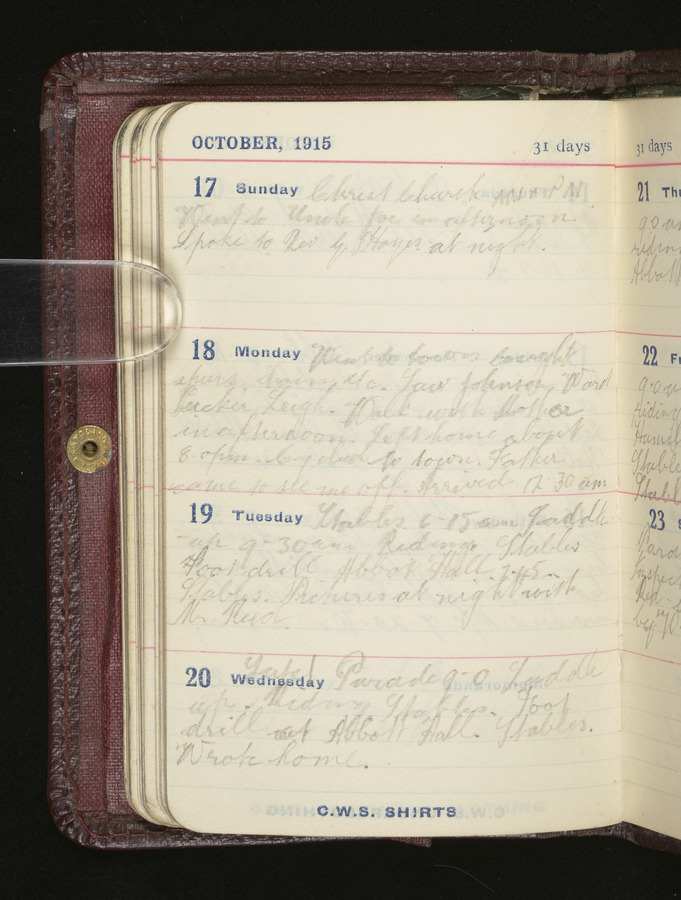 OCTOBER, 1915 31 days
17 Sunday Christ Church
Went to Uncle Joe in afternoon.
Spoke to Rev G. Hayes at night.
18 Monday Went to town bought
spurs, &c. Saw Johnson, Ward
Leigh. Walk with Mother
in afternoon. Left home about
8.0pm. Cycled to town. Father
came to see me off. Arrived 12.30am
19 Tuesday Stables 6-15am Saddle
-up 9-30am Riding. Stables
Foot drill Abbot Hall. 2.45.
Stables. Pictures at night with
Mr.
20 Wednesday Parade 9-0 Saddle
up. Riding Stables. Foot
drill at Abbott Hall. Stables.
Wrote home.
C.W.S. SHIRTS
31 days
21 Thu
9.0 a
riding
Abbot
22 F
9.0 a
riding
Stable
Stabl
23 S
Para